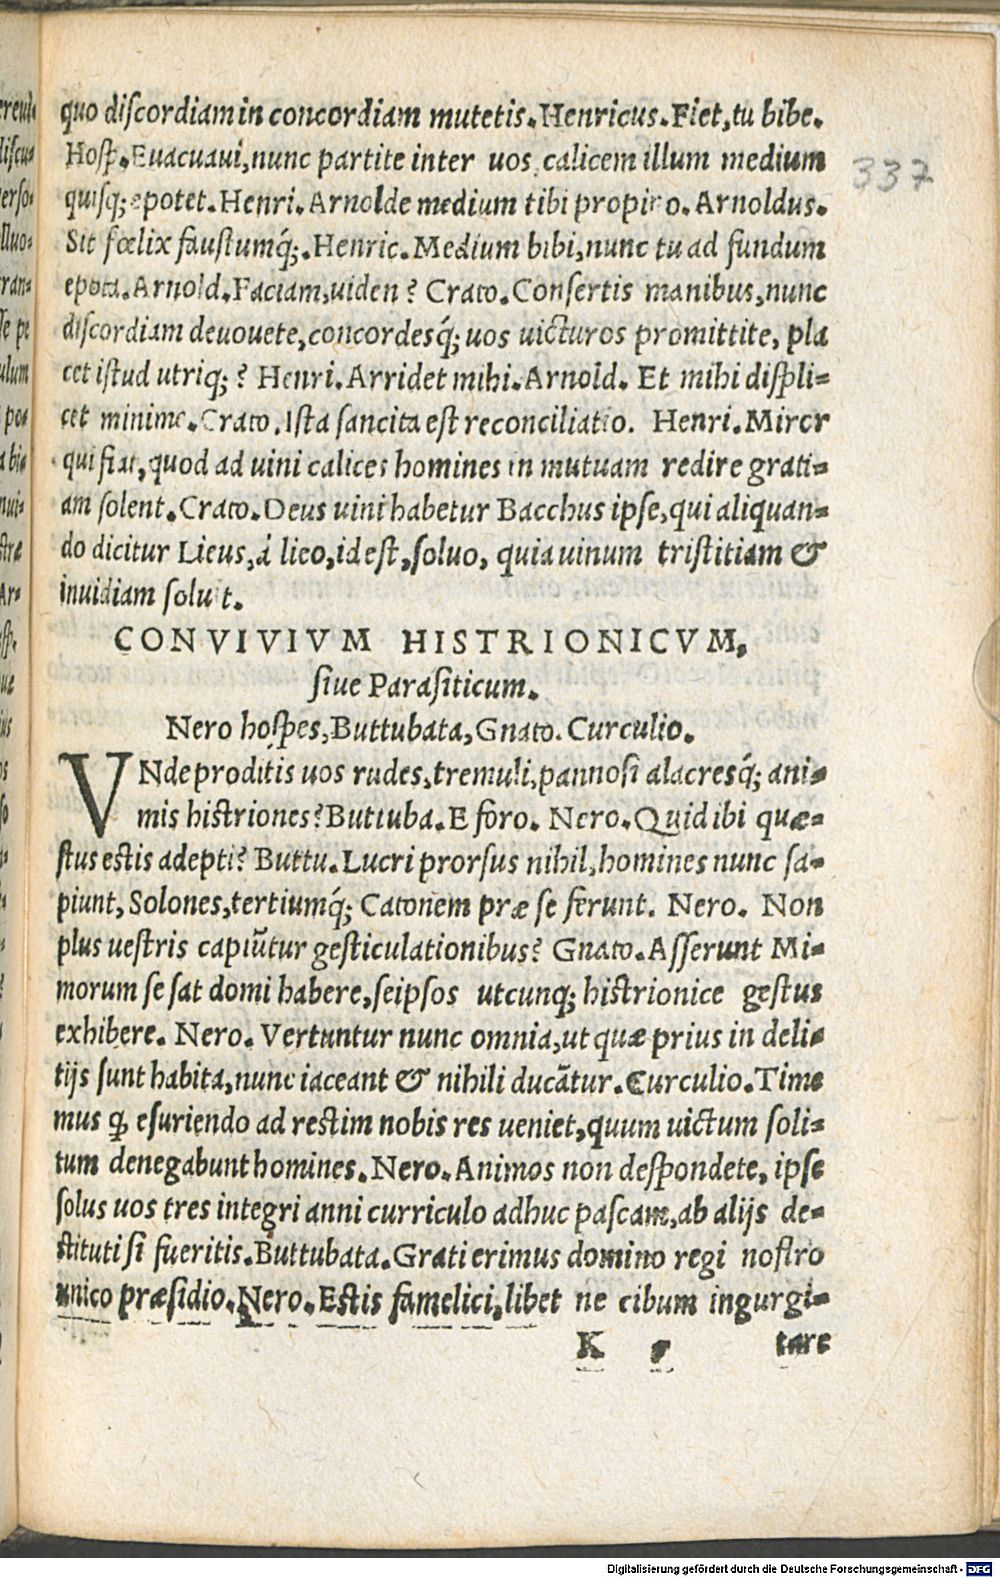 quo discordiam in concordiam mutetis. Henricus. Fiet, tu bibe.
Hosp. Euacuaui, nunc partite inter uos calicem illum medium
quisq; epotet. Henri. Arnolde medium tibi propino. Arnoldus.
Sit fœlix faustumq́;. Henric. Medium bibi, nunc tu ad fundum
epota. Arnold. Faciam, uiden? Crato. Consertis manibus, nunc
discordiam deuouete, concordesq́; uos uicturos promittite, pla
cet istud utriq;? Henri. Arridet mihi. Arnold. Et mihi displi-
cet minime. Crato. Ista sancita est reconciliatio. Henri. Miror
qui fiat, quod ad uini calices homines in mutuam redire grati-
am solent. Crato. Deus uini habetur Bacchus ipse, qui aliquan-
do dicitur Lieus, à lieo, id est, soluo, quia uinum tristitiam &
inuidiam soluit.
CONVIVIVM HISTRIONICVM,
siue Parasiticum.
Nero hospes, Buttubata, Gnato. Curculio.
VNde proditis uos rudes, tremuli, pannosi alacresq́; ani-
mis histriones? Buttuba. E foro. Nero. Quid ibi quæ-
stus estis adepti? Buttu. Lucri prorsus nihil, homines nunc sa-
piunt, Solones, tertiumq́; Catonem præ se ferunt. Nero. Non
plus uestris capiũtur gesticulationibus? Gnato. Asserunt Mi-
morum se sat domi habere, seipsos utcunq; histrionice gestus
exhibere. Nero. Vertuntur nunc omnia, ut quæ prius in deli-
tijs sunt habita, nunc iaceant & nihili ducãtur. Curculio. Time
mus ꝙ esuriendo ad restim nobis res ueniet, quum uictum soli-
tum denegabunt homines. Nero. Animos non despondete, ipse
solus uos tres integri anni curriculo adhuc pascam, ab alijs de-
stituti si fueritis. Buttubata. Grati erimus domino regi nostro
unico præsidio. Nero. Estis famelici, libet ne cibum ingurgi-
K tare
337
ereul-
discu-
erso-
lluo-
ran-
se pe
ulum
po-
nui-
stræ
Ar-
Digitalisierung gefördert durch die Deutsche Forschungsgemeinschaft - DFG